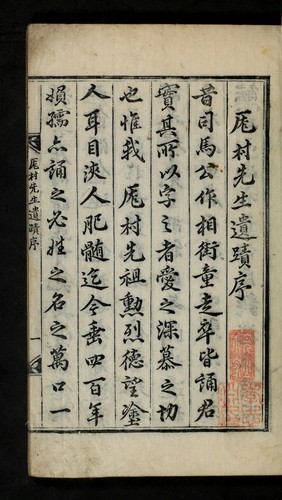 厖村先生遺蹟序
昔司馬公作相街童走卒皆誦君
實其所以字之者愛之深慕之切
也惟我厖村先祖勳烈德望塗
人耳目浹人肥髓迄今垂四百年
損孺亦誦之必姓之名之萬口一
厖村先生遺蹟序
一